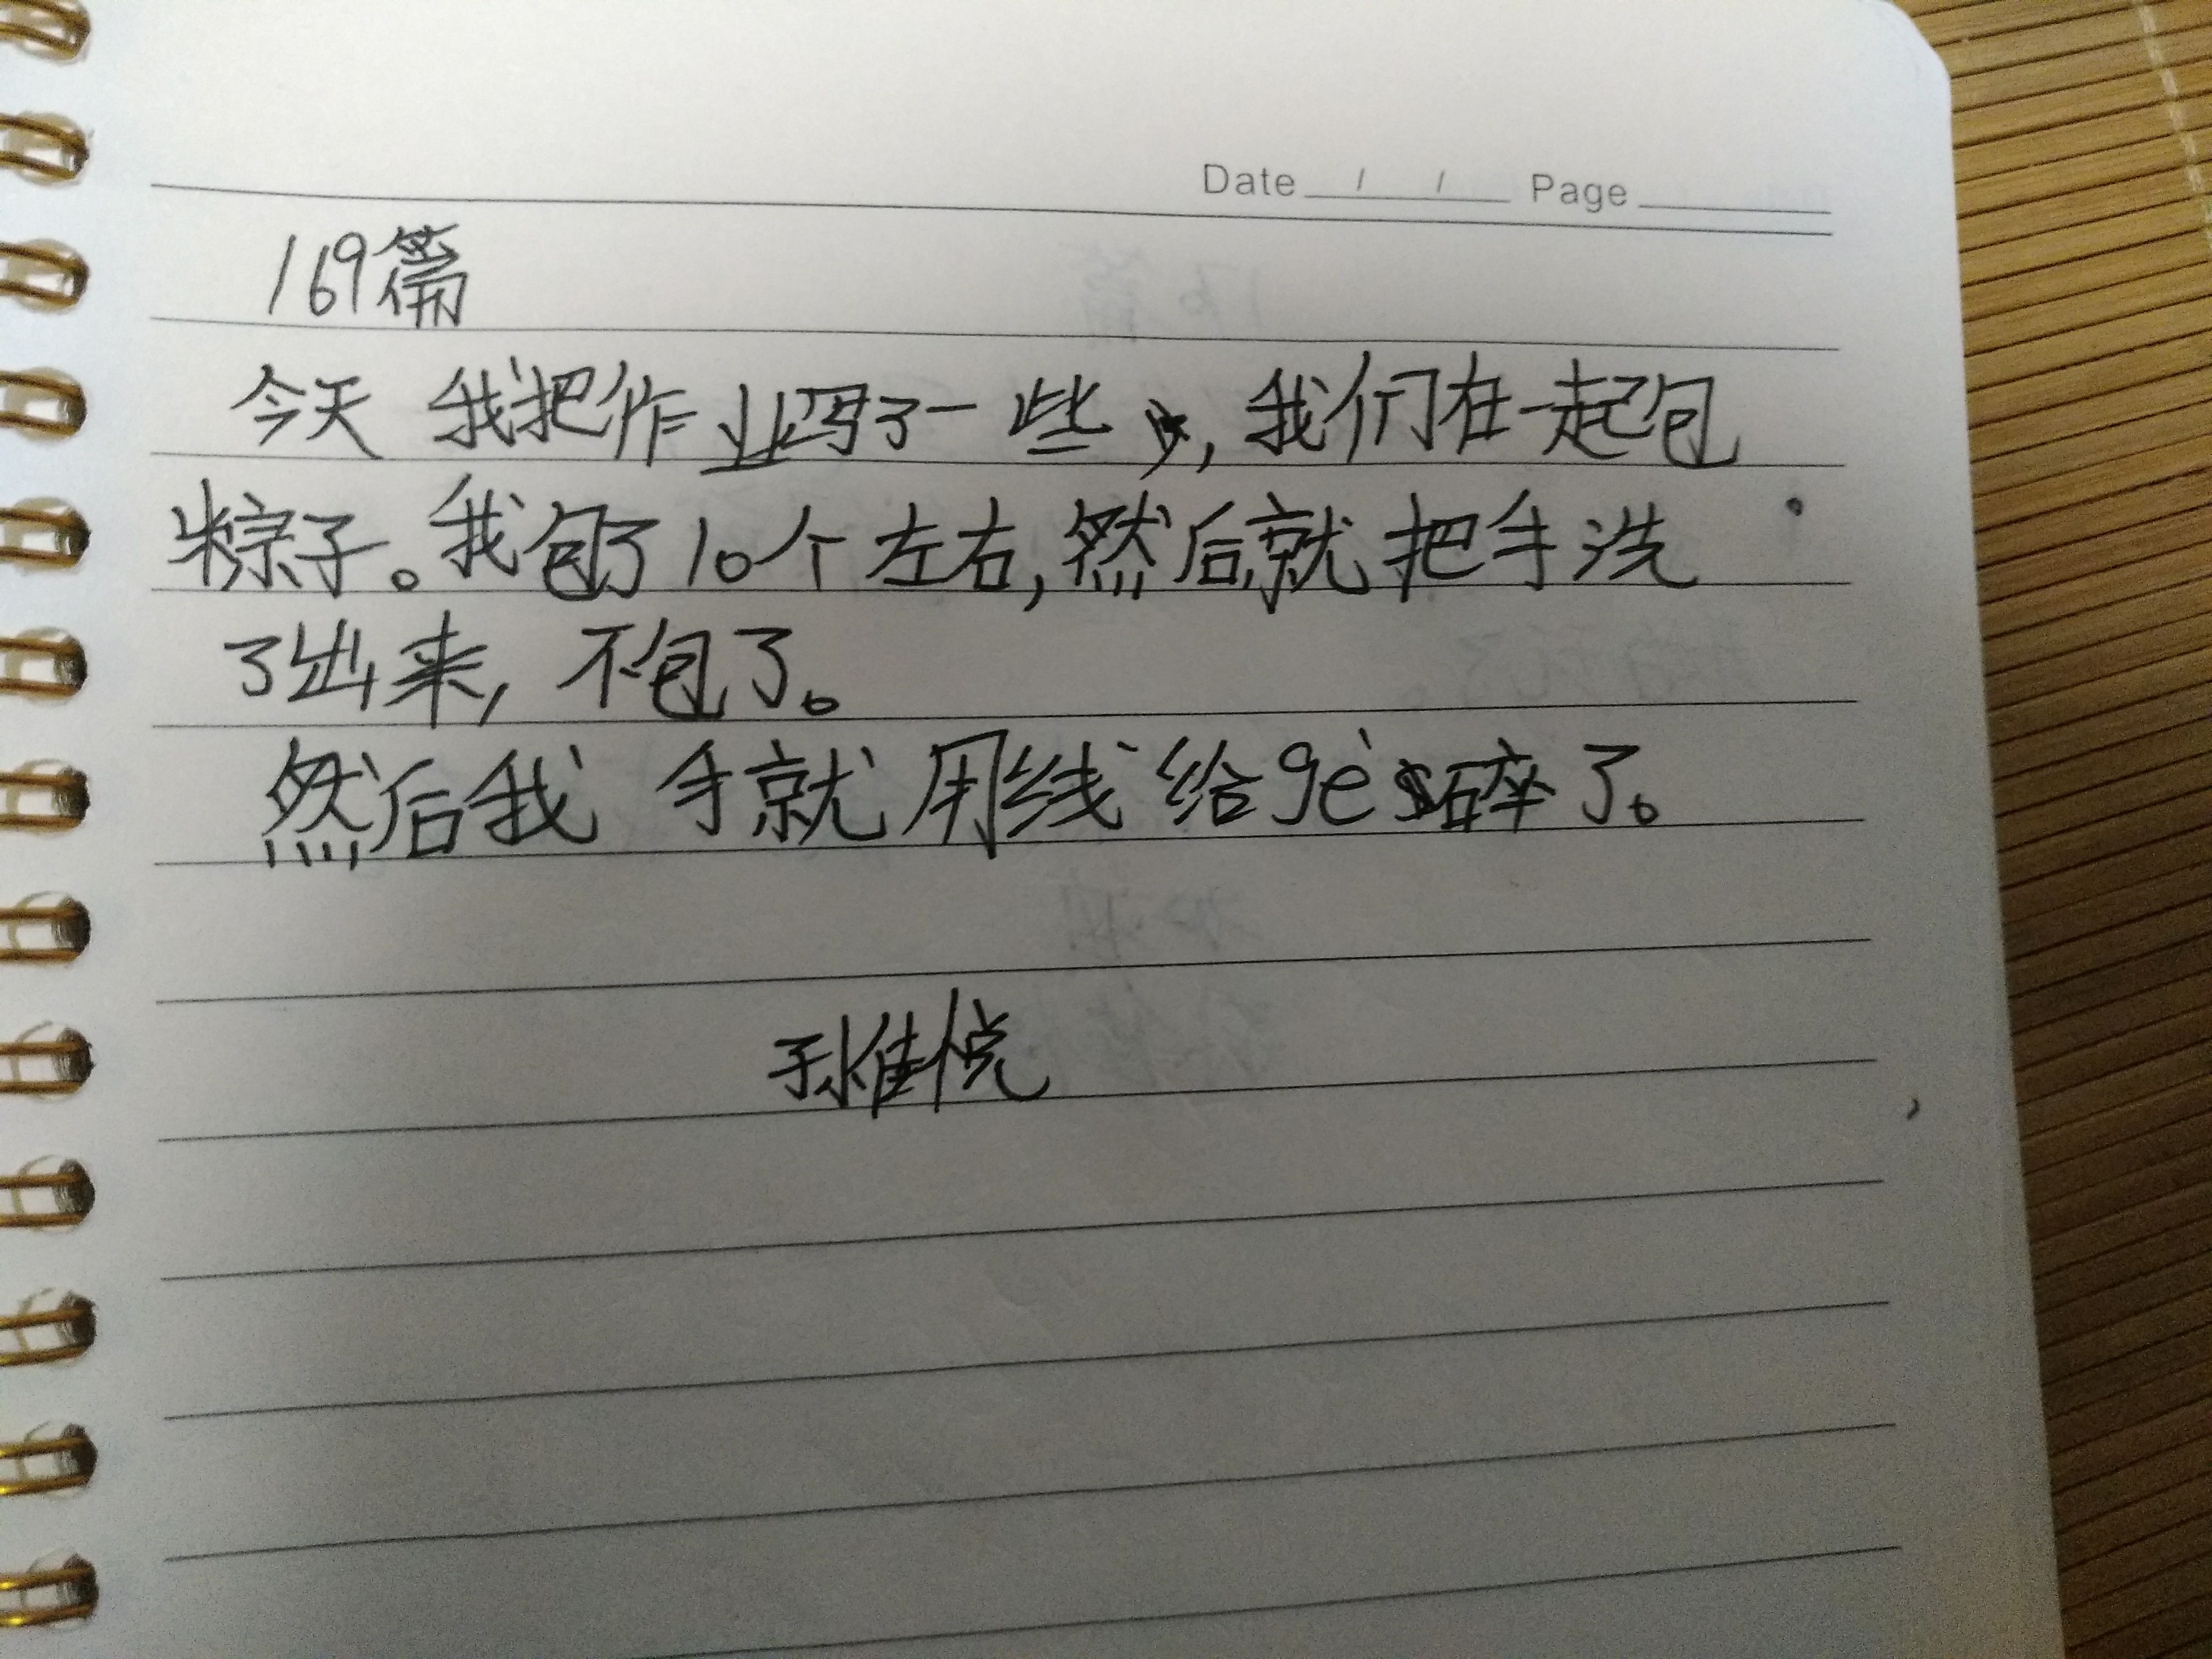 Date / / Page
169篇
今天 我把作业写了一些,我们在一起包
粽子。我包了10个左右,然后就把手洗
了出来,不包了。
然后我 手就用线给gè碎了。
孙佳悦